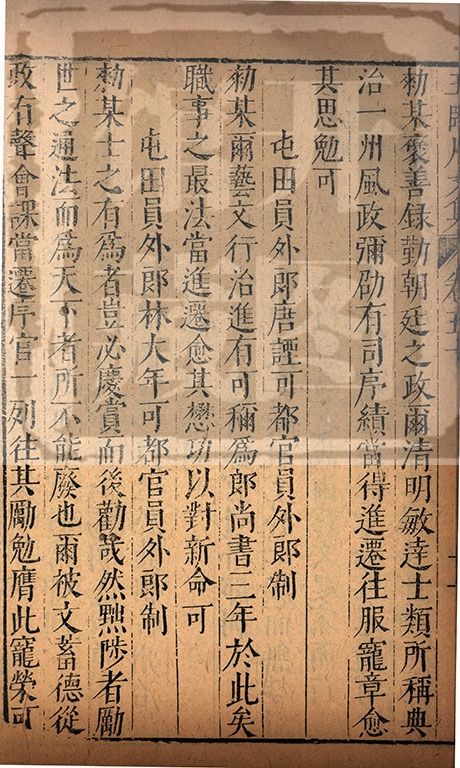 王臨川文集 卷五十
勑某褒善録勤朝廷之政爾清明敏達士類所稱典
治一州風政彌劭有司序績當得進遷往服寵章愈
其思勉可
屯田員外郎唐諲可都官員外郎制
勑某爾藝文行治進有可稱爲郎尚書三年於此矣
職事之最法當進遷愈其懋功以對新命可
屯田員外郎林大年可都官員外郎制
勑某士之有爲者豈必慶賞而後勸哉然黜陟者勵
世之通法而爲天下者所不能廢也爾被文蓄德從
政有聲會課當遷序官一列往其勵勉膺此寵榮可